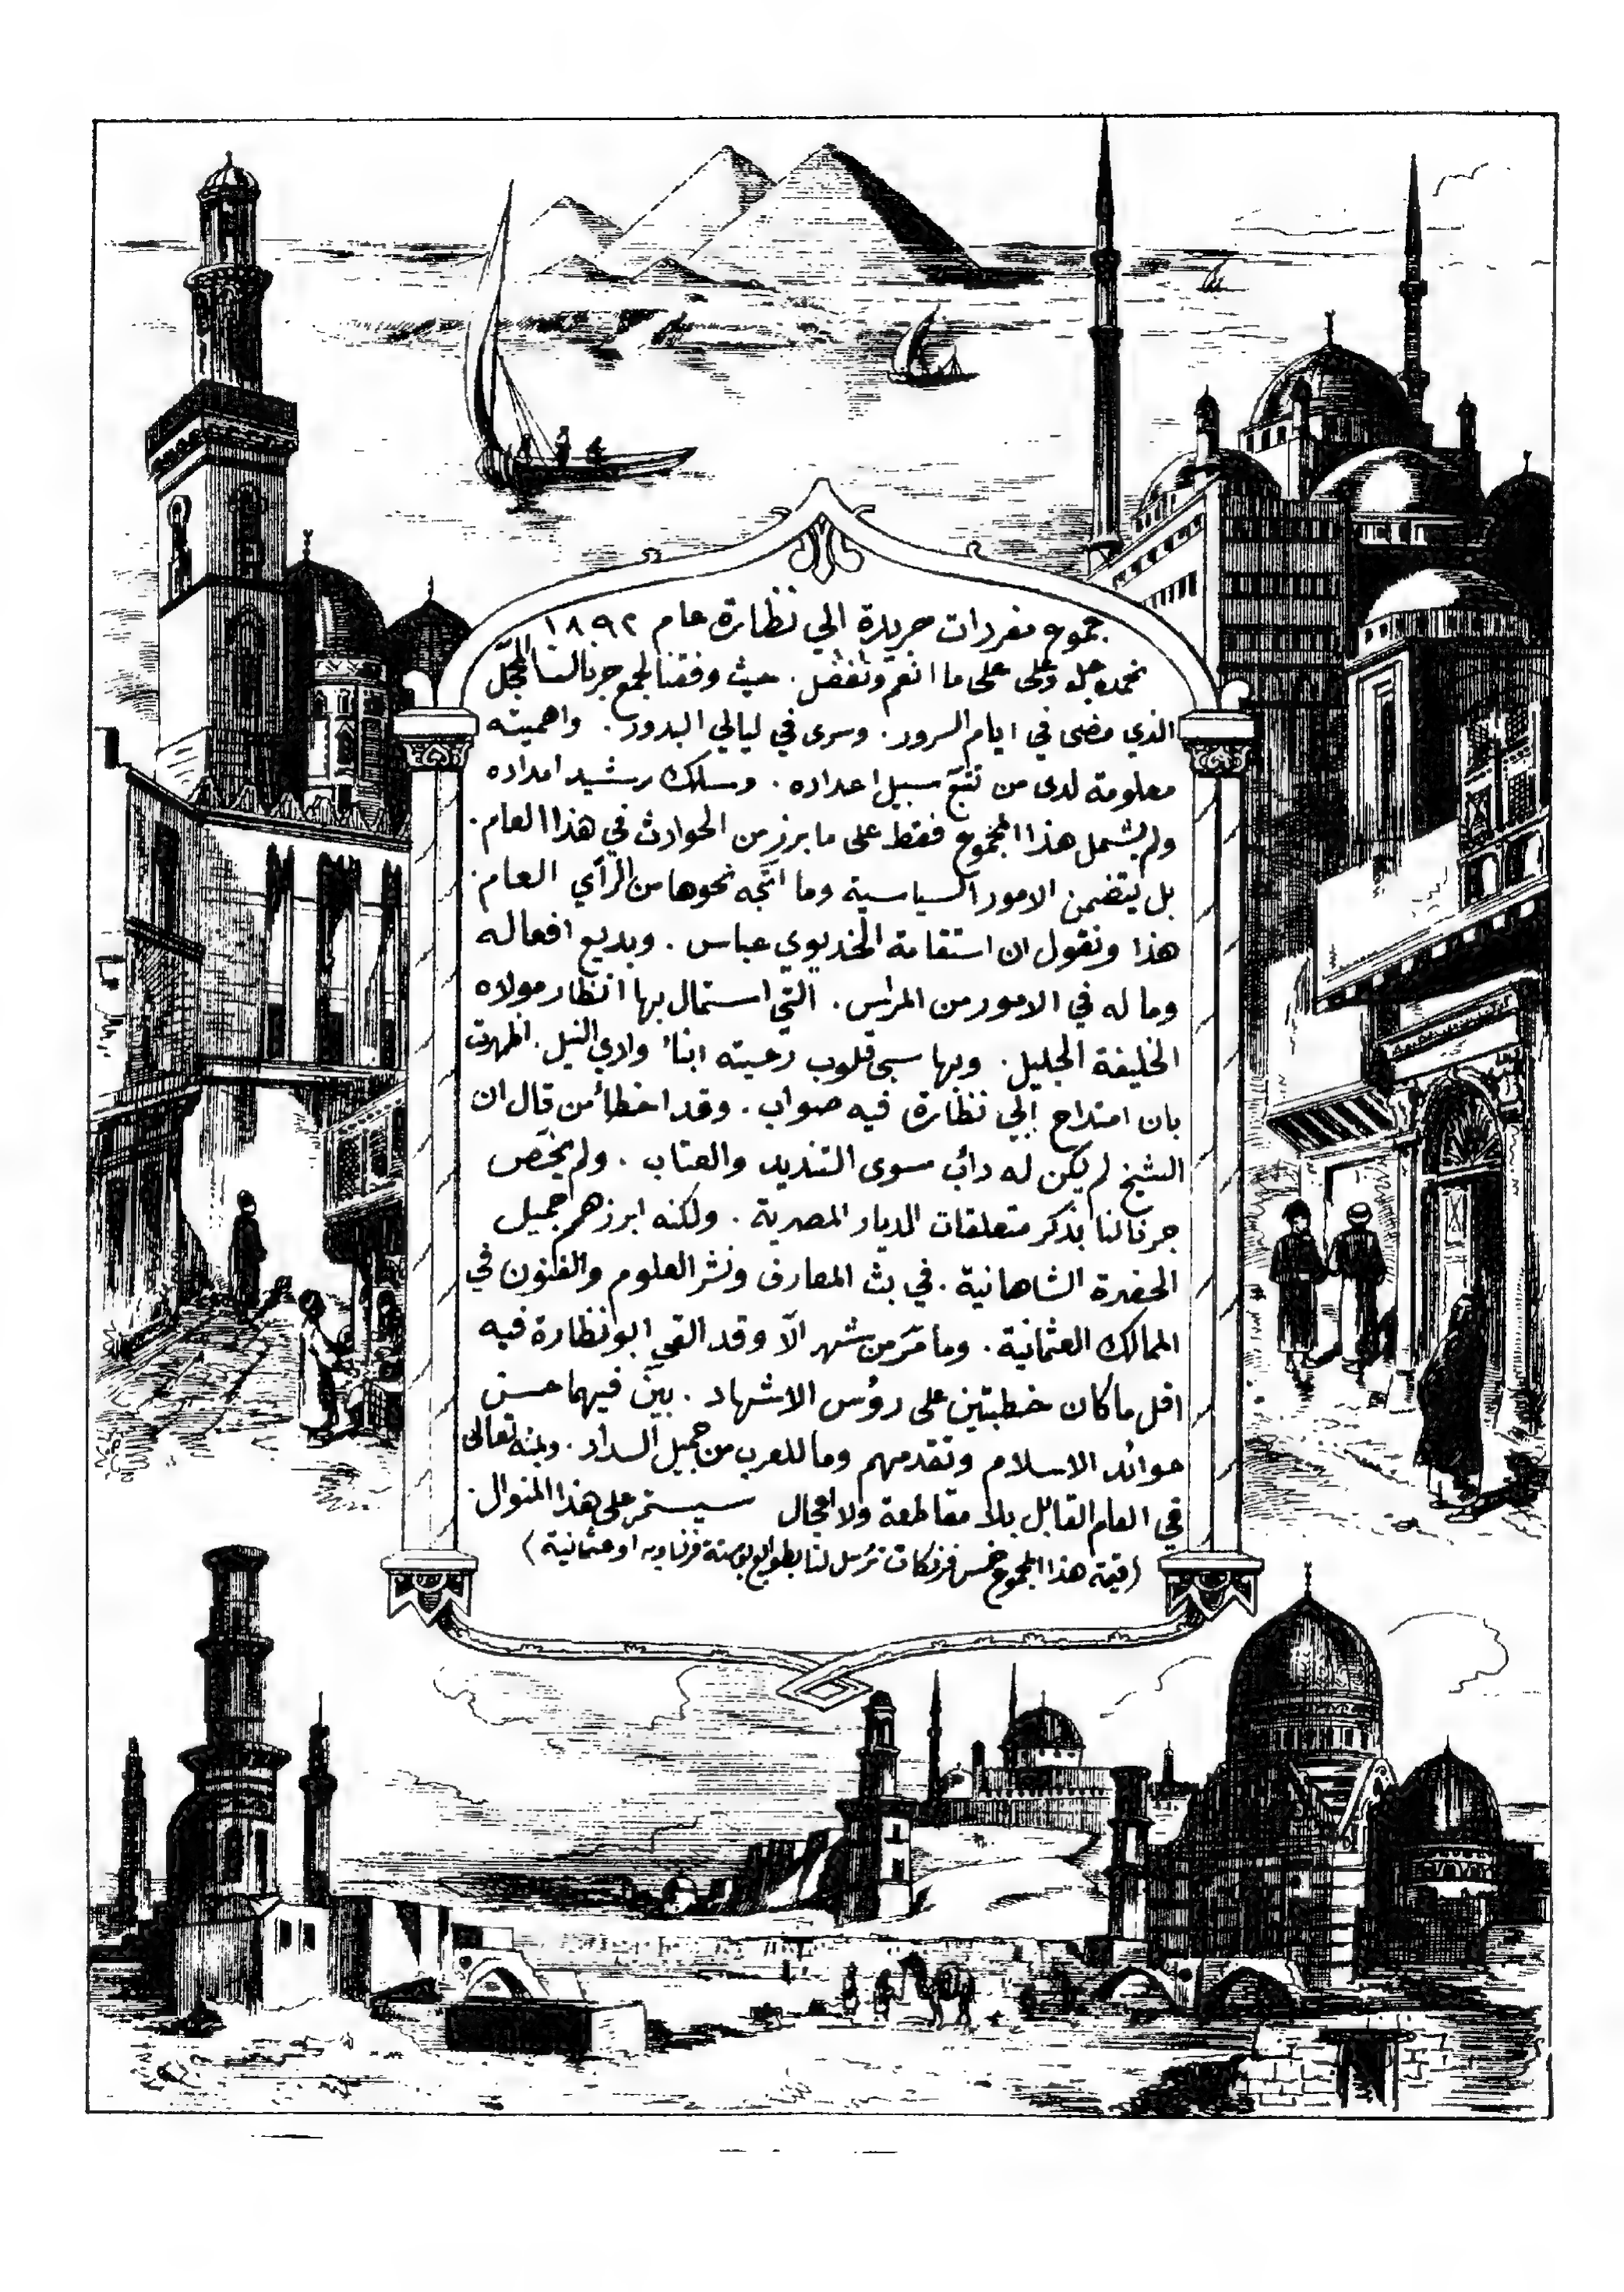 مجموع مفردات جريدة ابي نظارة عام ١٨٩٢
نحمده جل وعلى على ما انعم وتفضل . حيث وفقنا لجمع جرنالنا المبجّل
الذي مضى في ايام السرور . وسرى في ليالي البدور . واهميته
معلومة لدى من تتبّع سبيل اعداده . وسلك رشيد امداده
ولم يشمل هذا المجموع فقط على ما برز من الحوادث في هذا العام .
بل يتضمن الامور السياسية وما اتّجه نحوها من الرأي العام .
هذا ونقول ان استقامة الخديوي عباس . وبديع افعاله
وما له في الامور من المراس . التي استمال بها انظار مولاه
الخليفة الجليل . وبها سبى قلوب رعيته ابناء وادي النيل . اظهرت
بان امتداح ابي نظارة فيه صواب . وقد اخطأ من قال ان
الشيخ لم يكن له دأب سوى التنديد والعتاب . ولم يختّص
جرنالنا بذكر متعلقات الديار المصرية . ولكنه ابرز هم جميل
الحضرة الشاهانية . في بث المعارف ونشر العلوم والفنون في
الممالك العثمانية . وما مرّ من شهر الّا وقد القى ابو نظارة فيه
اقل ما كان خطبتين على رؤس الاشهاد . بيّن فيهما حسن
عوائد الاسلام وتقدمهم وما للعرب من جميل السداد . وبمنه تعالى
في العام القابل بلا مقاطعة ولا اهمال سيستمر على هذا المنوال .
(قيمة هذا المجموع خمس فرنكات ترسل لنا بطوابع بوستة فرنساويه او عثمانية)